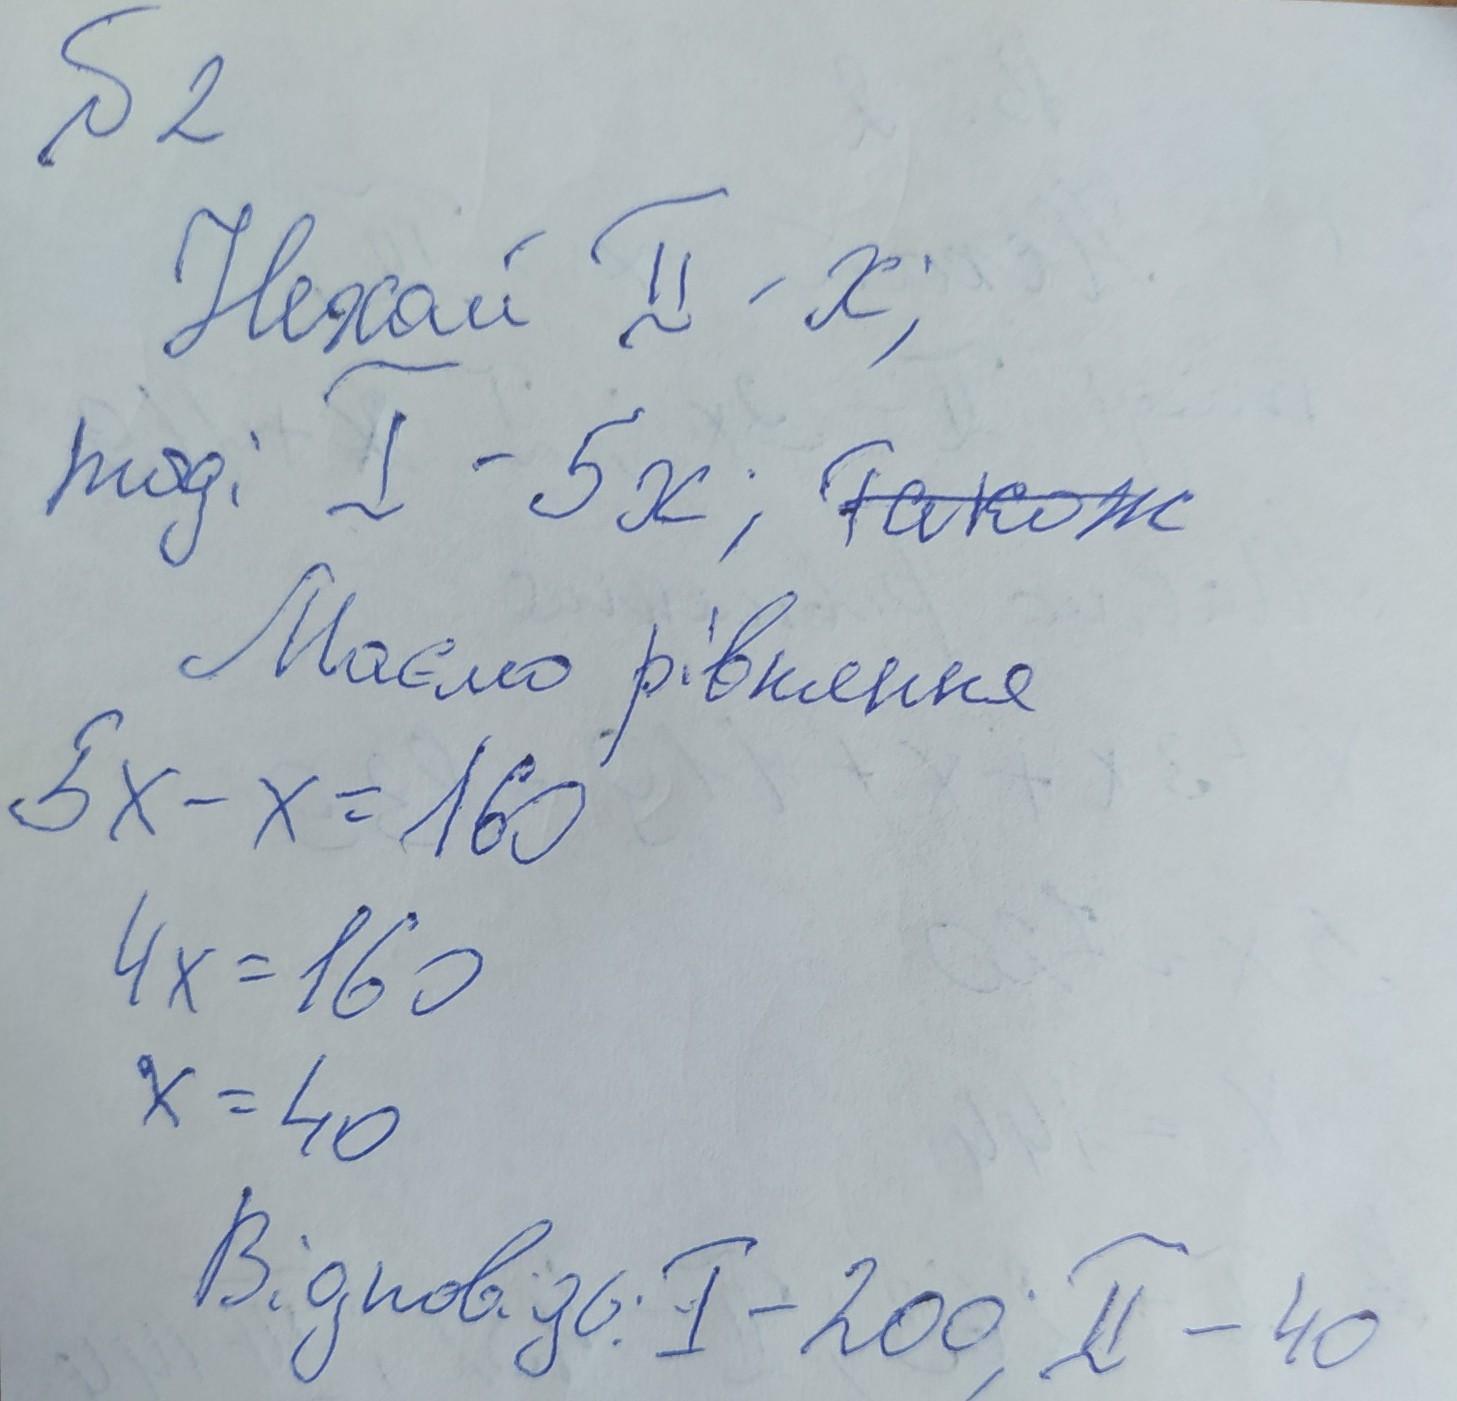 № 2
Нехай II - x;
тоді I - 5x; також
Маємо рівняння
5x - x = 160
4x = 160
x = 40
Відповідь: I - 200; II - 40